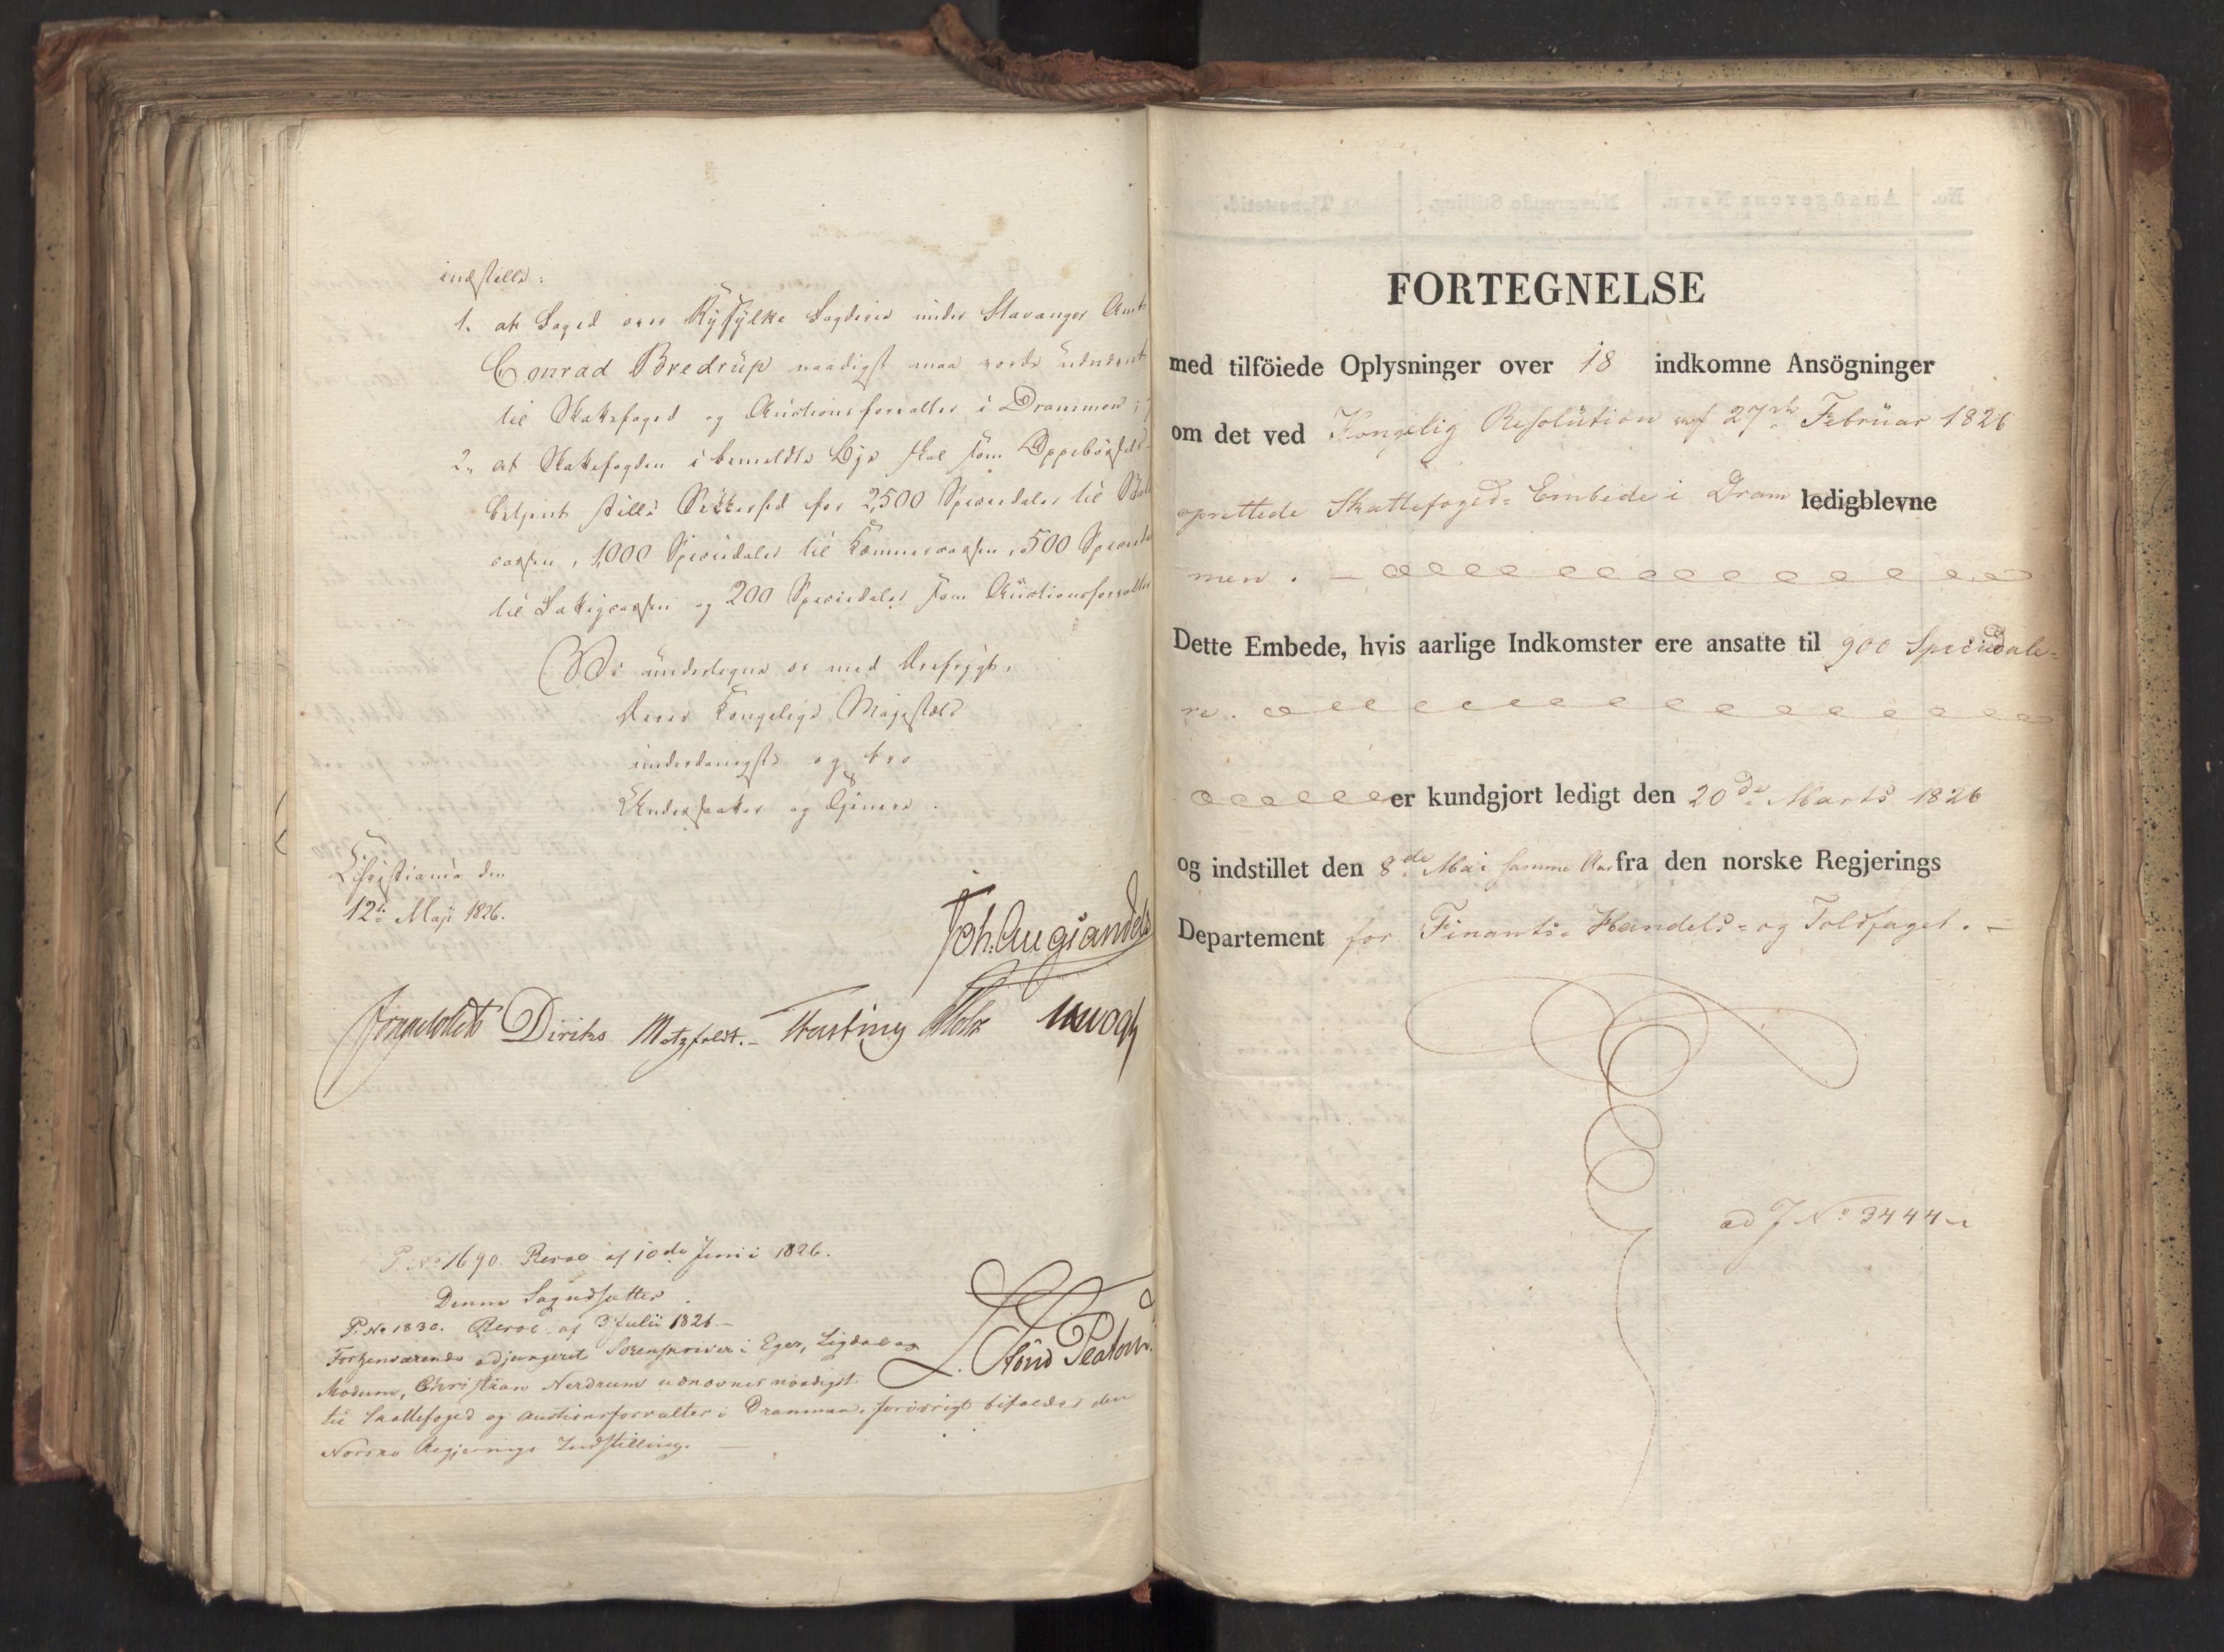 indstille:
1. at Foged over Ryfylke Fogderie under Stavanger Amt
Conrad Bredrup naadigst maa vorde udnævnt
til Skattefoged og Auctionsforvalter i Drammen;
2. at Skattefogden i bemeldte Bye skal som Oppebørsels-
betjent stille Sikkerhed for 2,500 Speciedaler til Stats
cassen, 1000 Speciedaler til Kæmnercassen, 500 Speciedaler
til Fattigcassen og 200 Speciedaler som Auctionsforvalter
Vi undertegne os med Ærefrygt,
Deres Kongelige Majestæts
underdanigste og tro
Undersaatter og Tjenere.
Christiania den
12te Maji 1826.
Joh. Aug. Sandels
Diriks Motzfeldt. Fasting Holst
P. No 1690. Resol. af 10de Juni 1826.
Denne Sag udsættes.
P. No 1830. Resol. af 3 Julii 1826.
Forhenværende adjungeret Sorenskriver i Eger, Sigdal og
Modum, Christian Nerdrum udnævnes naadigst
til Skattefoged og Auctionsforvalter i Drammen, forøvrigt bifaldes den
Norske Regjerings Indstilling.
FORTEGNELSE
med tilföiede Oplysninger over 18 indkomne Ansögninger
om det ved Kongelig Resolution af 27de Februar 1826
oprettede Skattefoged-Embede i Dram ledigblevne
men.
Dette Embede, hvis aarlige Indkomster ere ansatte til 900 Speciedale-
re.
er kundgjort ledigt den 20de Marts 1826
og indstillet den 8de Mai samme Aar fra den norske Regjerings
Departement for Finants- Handels- og Toldfaget.
ad J No 3444